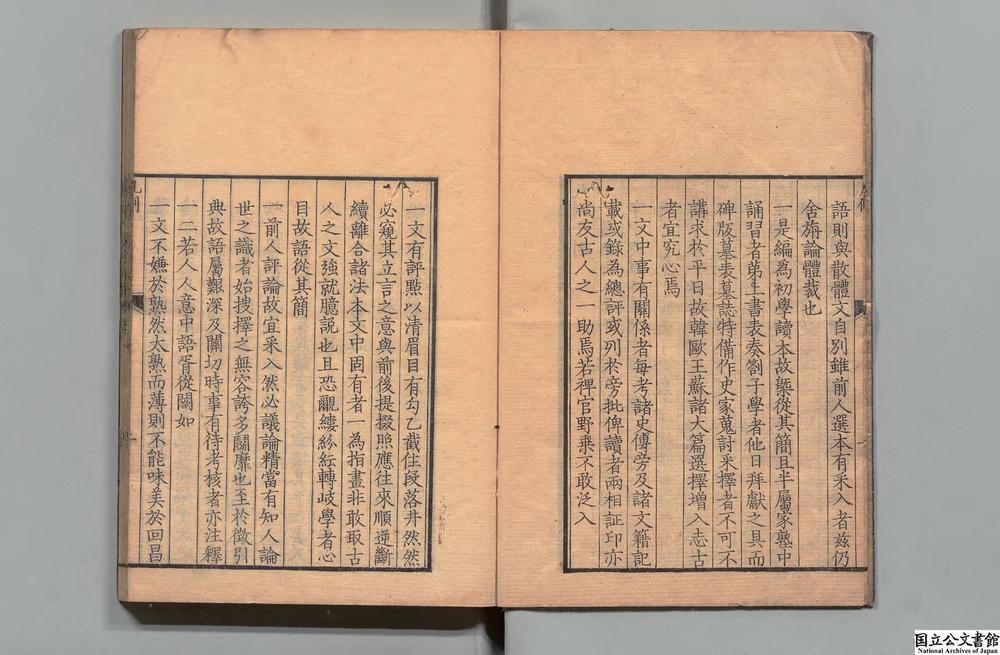 語則與散體文自別雖前人選本有采入者茲仍
舍旃論體裁也
一是編為初學讀本故槩從其簡且半屬家塾中
誦習者第上書表奏劄子學者他日拜獻之具而
碑版墓表墓誌特備作史家蒐討采擇者不可不
講求於平日故韓歐王蘇諸大篇選擇增入志古
者宜究心焉
一文中事有關係者每考諸史傳旁及諸文籍記
載或錄為總評或列於旁批俾讀者兩相証印亦
尚友古人之一助焉若稗官野乘不敢泛入
一文有評點以清眉目有勾乙截住段落井然然
必窺其立言之意與前後提掇照應往來順逆斷
續離合諸法本文中固有者一為指畫非敢取古
人之文強就臆說也且恐覼縷紛紜轉歧學者心
目故語從其簡
一前人評論故宜采入然必議論精當有知人論
世之識者始搜擇之無容誇多鬭靡也至於徵引
典故語屬艱深及關切時事有待考核者亦注釋
一二若人人意中語胥從闕如
一文不嫌於熟然太熟而薄則不能味美於回昌
凡例
国立公文書館
National Archives of Japan